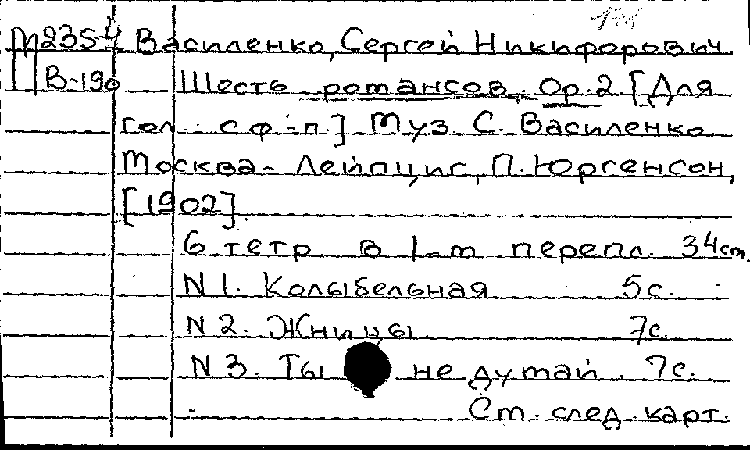 М235-4 Василенко, Сергей Никифорович.
В-190 Шесть романсов, Ор.2 [Для
гол. с ф-п] Муз. С. Василенко
Москва-Лейпциг, П. Юргенсон,
[1902].
6 тетр в 1-м перепл. 34см.
N 1. Колыбельная 5с.
N 2. Жницы 7с.
N 3. Ты не думай. 7с.
См. след. карт.